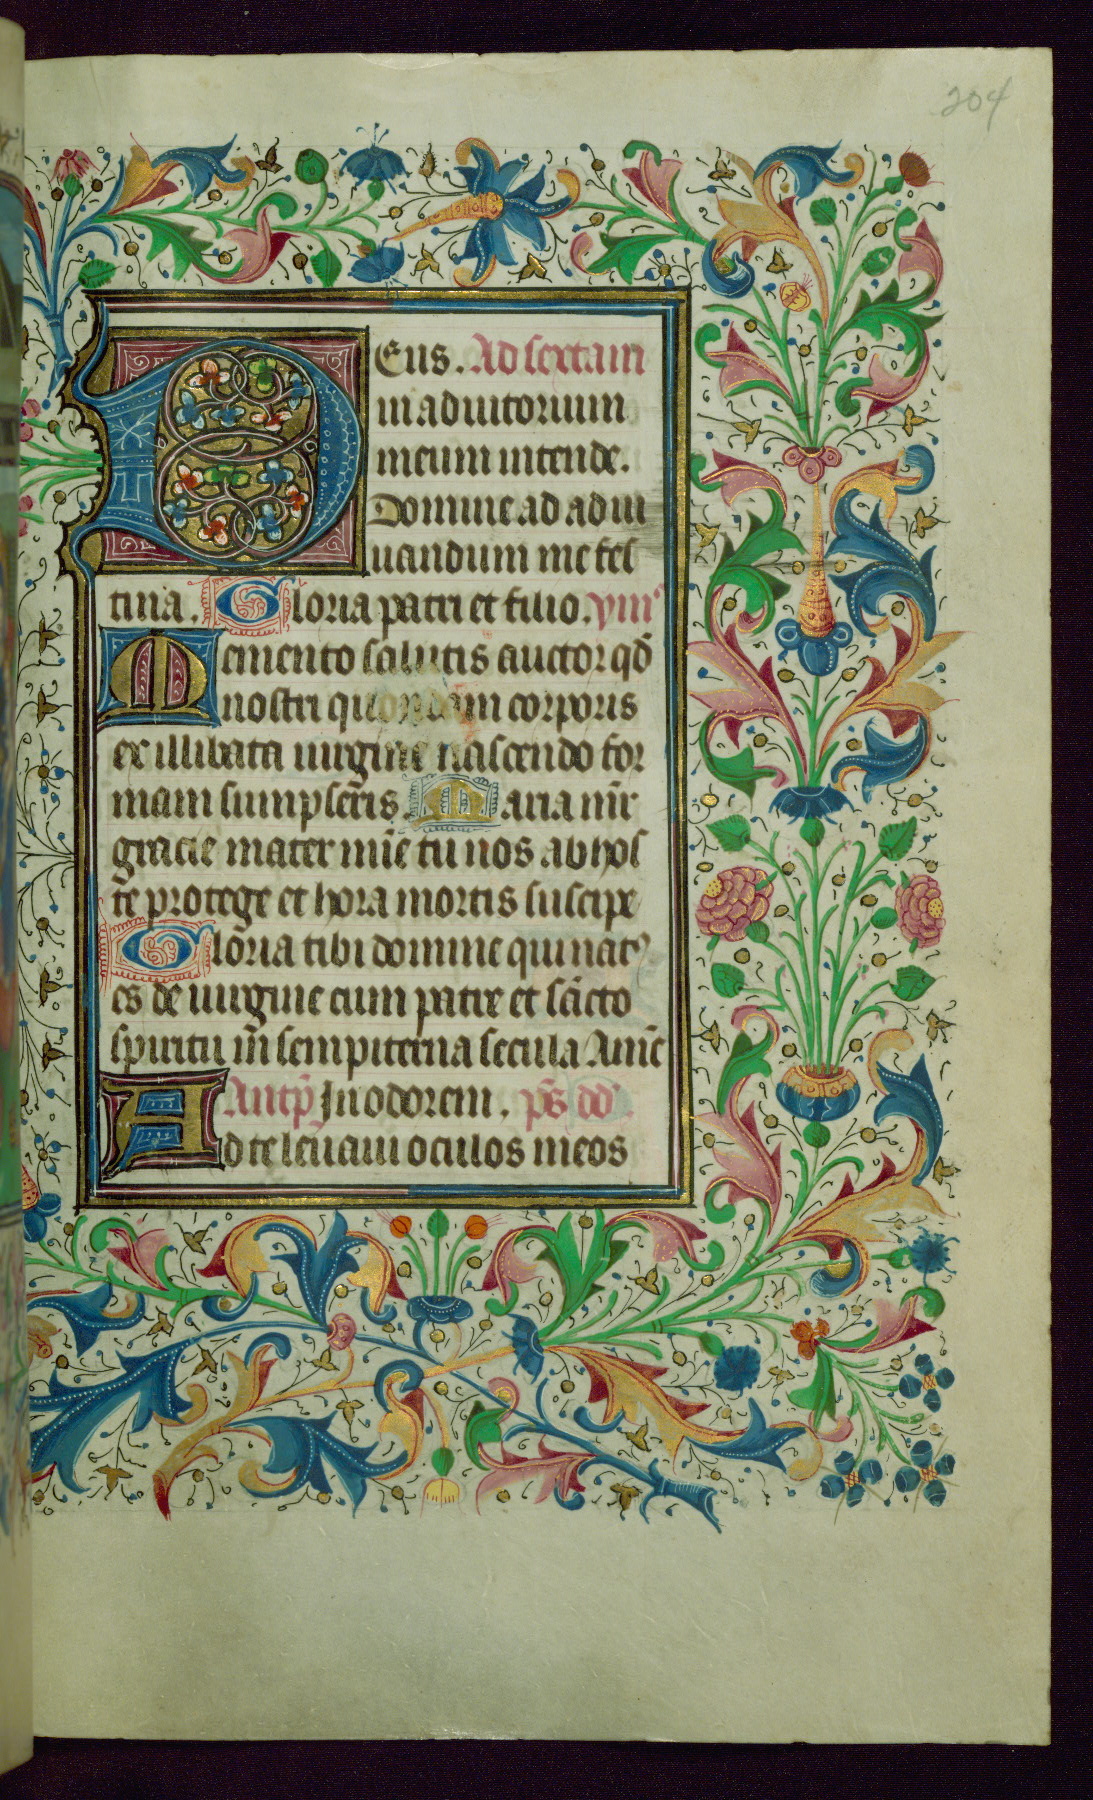 204
DEus. Ad sextam
in adiutorium
meum intende.
Domine ad adiu
uandum me fes
tina. Gloria patri et filio. ymꝰ
Memento salutis auctor qd̄
nostri quondam corporis
ex illibata uirgine nascendo for
mam sumpseris. Maria mr̄
gracie mater mīe tu nos ab hos
te protege et hora mortis suscipe
Gloria tibi domine qui natꝰ
es de uirgine cum patre et sc̄to
spiritu in̄ sempiterna secula Amē
Antip̄ In odorem. ps̄ dd̄
Ad te leuaui oculos meos